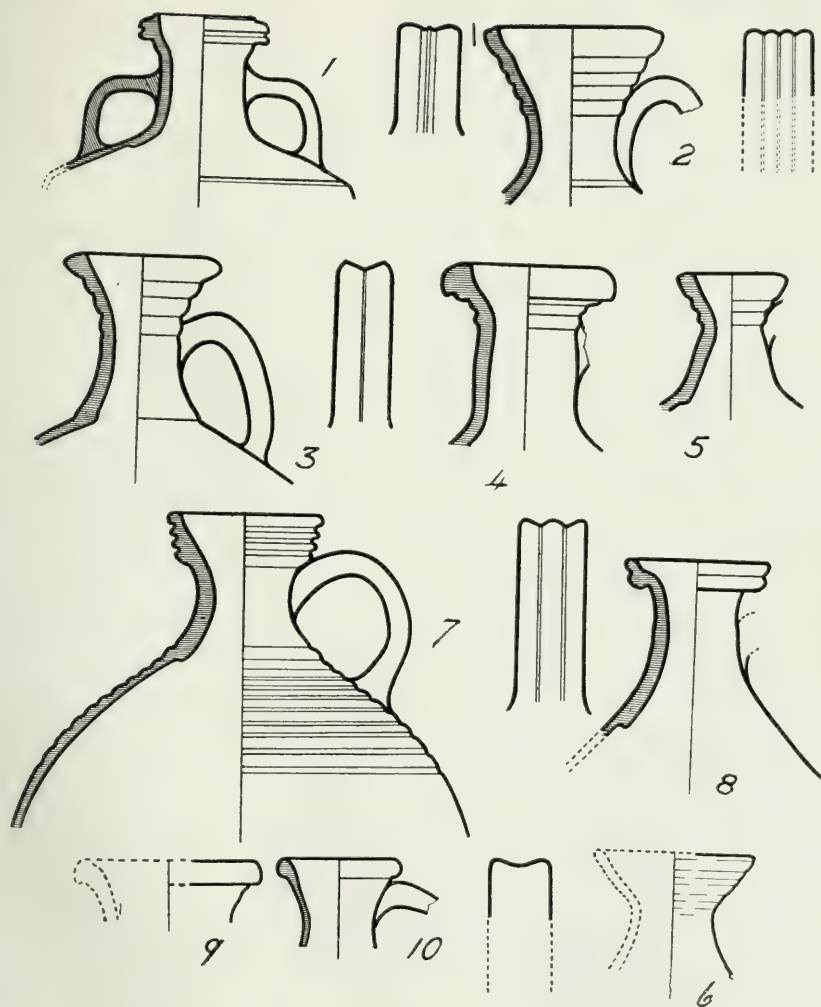 1
2
3
4
5
7
8
9
10
6